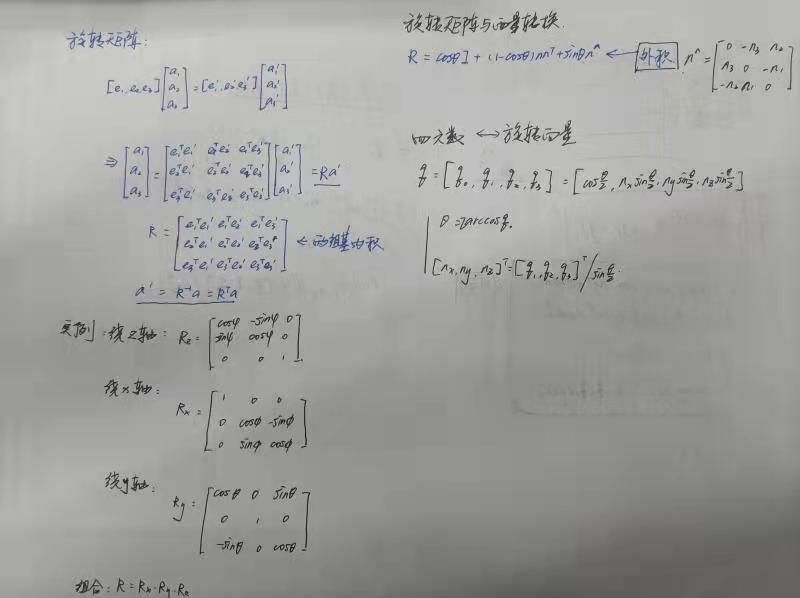 旋转矩阵:
[e₁, e₂, e₃] [a₁ a₂ a₃] = [e₁' e₂' e₃'] [a₁' a₂' a₃']
⇒ [a₁ a₂ a₃] = [e₁ᵀe₁' e₁ᵀe₂' e₁ᵀe₃' ; e₂ᵀe₁' e₂ᵀe₂' e₂ᵀe₃' ; e₃ᵀe₁' e₃ᵀe₂' e₃ᵀe₃'] [a₁' a₂' a₃'] = Ra'
R = [e₁ᵀe₁' e₁ᵀe₂' e₁ᵀe₃' ; e₂ᵀe₁' e₂ᵀe₂' e₂ᵀe₃' ; e₃ᵀe₁' e₃ᵀe₂' e₃ᵀe₃'] ← 两组基内积
a' = R⁻¹a = Rᵀa
实例: 绕z轴: Rz = [cosψ -sinψ 0 ; sinψ cosψ 0 ; 0 0 1]
绕x轴: Rx = [1 0 0 ; 0 cosϕ -sinϕ ; 0 sinϕ cosϕ]
绕y轴: Ry = [cosθ 0 sinθ ; 0 1 0 ; -sinθ 0 cosθ]
组合: R = Rx·Ry·Rz
旋转矩阵与向量转换.
R = cosθI + (1-cosθ)nnᵀ + sinθn^ ← 外积 n^ = [0 -n₃ n₂ ; n₃ 0 -n₁ ; -n₂ n₁ 0]
四元数 ↔ 旋转向量
q = [q₀, q₁, q₂, q₃] = [cosθ/2, nx sinθ/2, ny sinθ/2, nz sinθ/2]
θ = 2arccosq₀
[nx, ny, nz]ᵀ = [q₁, q₂, q₃]ᵀ / sinθ/2.